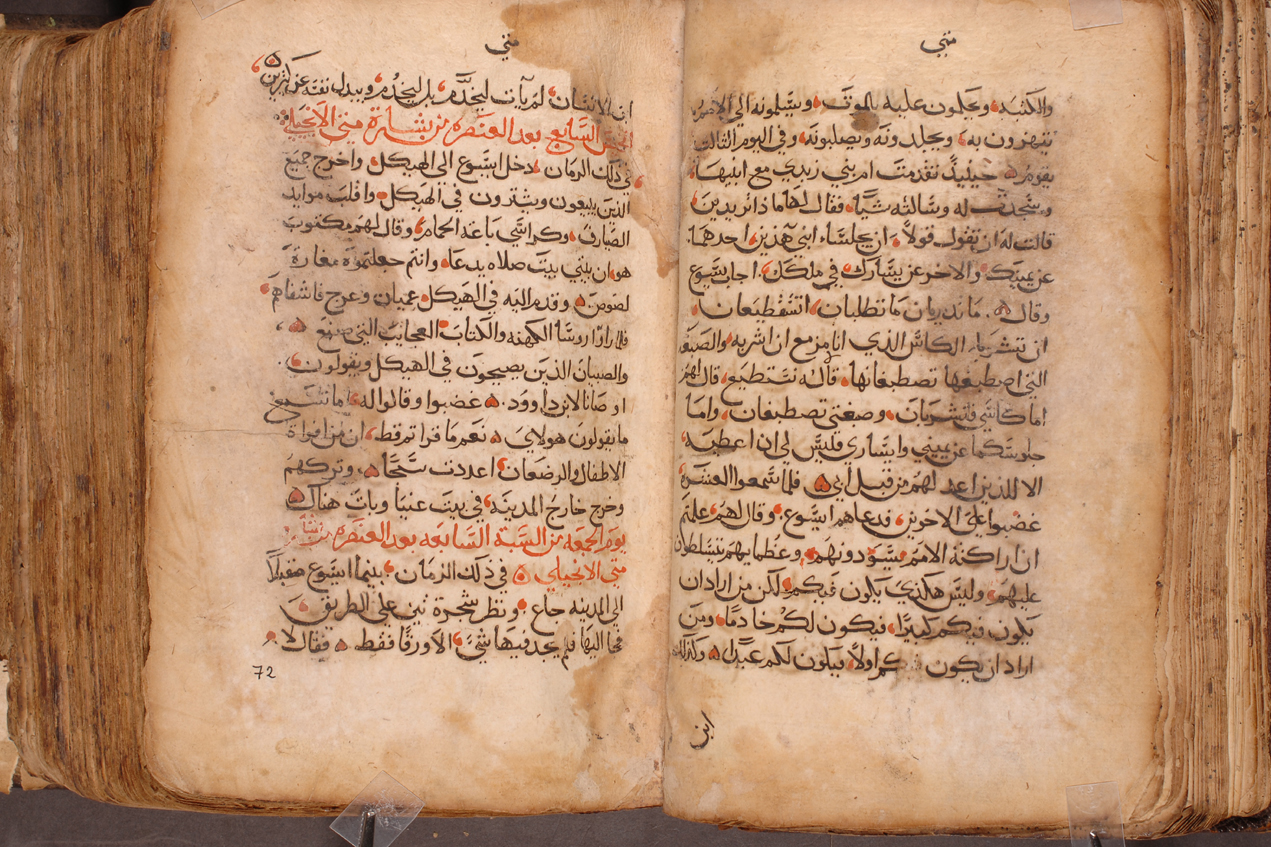 متي
والكتبه ويحكمون عليه بالموت ويسلمونه الى الامم
يتهزون به ويجلدونه ويصلبونه وفي اليوم الثالث
يقوم حينيذ تقدمت ام بني زبدي مع ابنيها
وسجدت له وسالته شيا فقال لها ماذا تريدين
قالت له ان تقول قولا ان يجلسا ابني هذين احدهما
عن يمينك والاخر عن يسارك في ملكك اجاب يسوع
وقال ما تدريان ما تطلبان اتستطيعان
ان تشربا الكاس الذي انا مزمع ان اشربه والصبغه
التي اصطبغها تصطبغانها قالا نستطيع قال لهم
اما كاسي فتشربان وصبغتي تصطبغان واما
جلوسكما عن يميني وايساري فليس لي ان اعطيه
الا للذين اعد لهم من قبل ابي فلما سمعوا العشرة
غضبوا على الاخوين فدعاهم ايسوع وقال لهم علمتم
ان اراكنة الامم يسودونهم وعظمايهم يتسلطون
عليهم وليس هكذي يكون فيكم لكن من اراد ان
يكون فيكم كبيرا فيكون لكم خادما ومن
اراد ان يكون اولا فيكون لكم عبدا وكذلك
ابن
متي
ابن الانسان لم يات ليخدم بل ليخدم ويبدل نفسه عن كثيرين
السابع بعد العنصره من بشارة متى الانجيلي
في ذلك الزمان دخل ايسوع الى الهيكل واخرج جميع
الذين يبيعون ويشترون في الهيكل واقلب موايد
الصيارف وكراسي باعة الحمام وقال لهم مكتوب
هو ان بيتي بيت صلاه يدعا وانتم جعلتموه مغارة
لصوص وقدم اليه في الهيكل عميان وعرج فاشفاهم
فلما راوا روسا الكهنه والكتاب العجايب التي صنع
والصبيان الذين يصيحون في الهيكل ويقولون
اوصانا لابن داوود غضبوا وقالوا له اما تسمع
ما يقولون هولاي نعم ما قراتم قط ان من افواة
الاطفال والرضعان اعددت سبحا وتركهم
وخرج خارج المدينه في بيت عنيا وبات هناك
يوم الجمعه من السبة السابعه بعد العنصره من بشارة
متي الانجيلي في ذلك الزمان بينما ايسوع مقبلا
الى المدينه جاع ونظر شجرة تين على الطريق
فجا اليها فلم يجد فيها شي الا ورقا فقط فقال لا
72